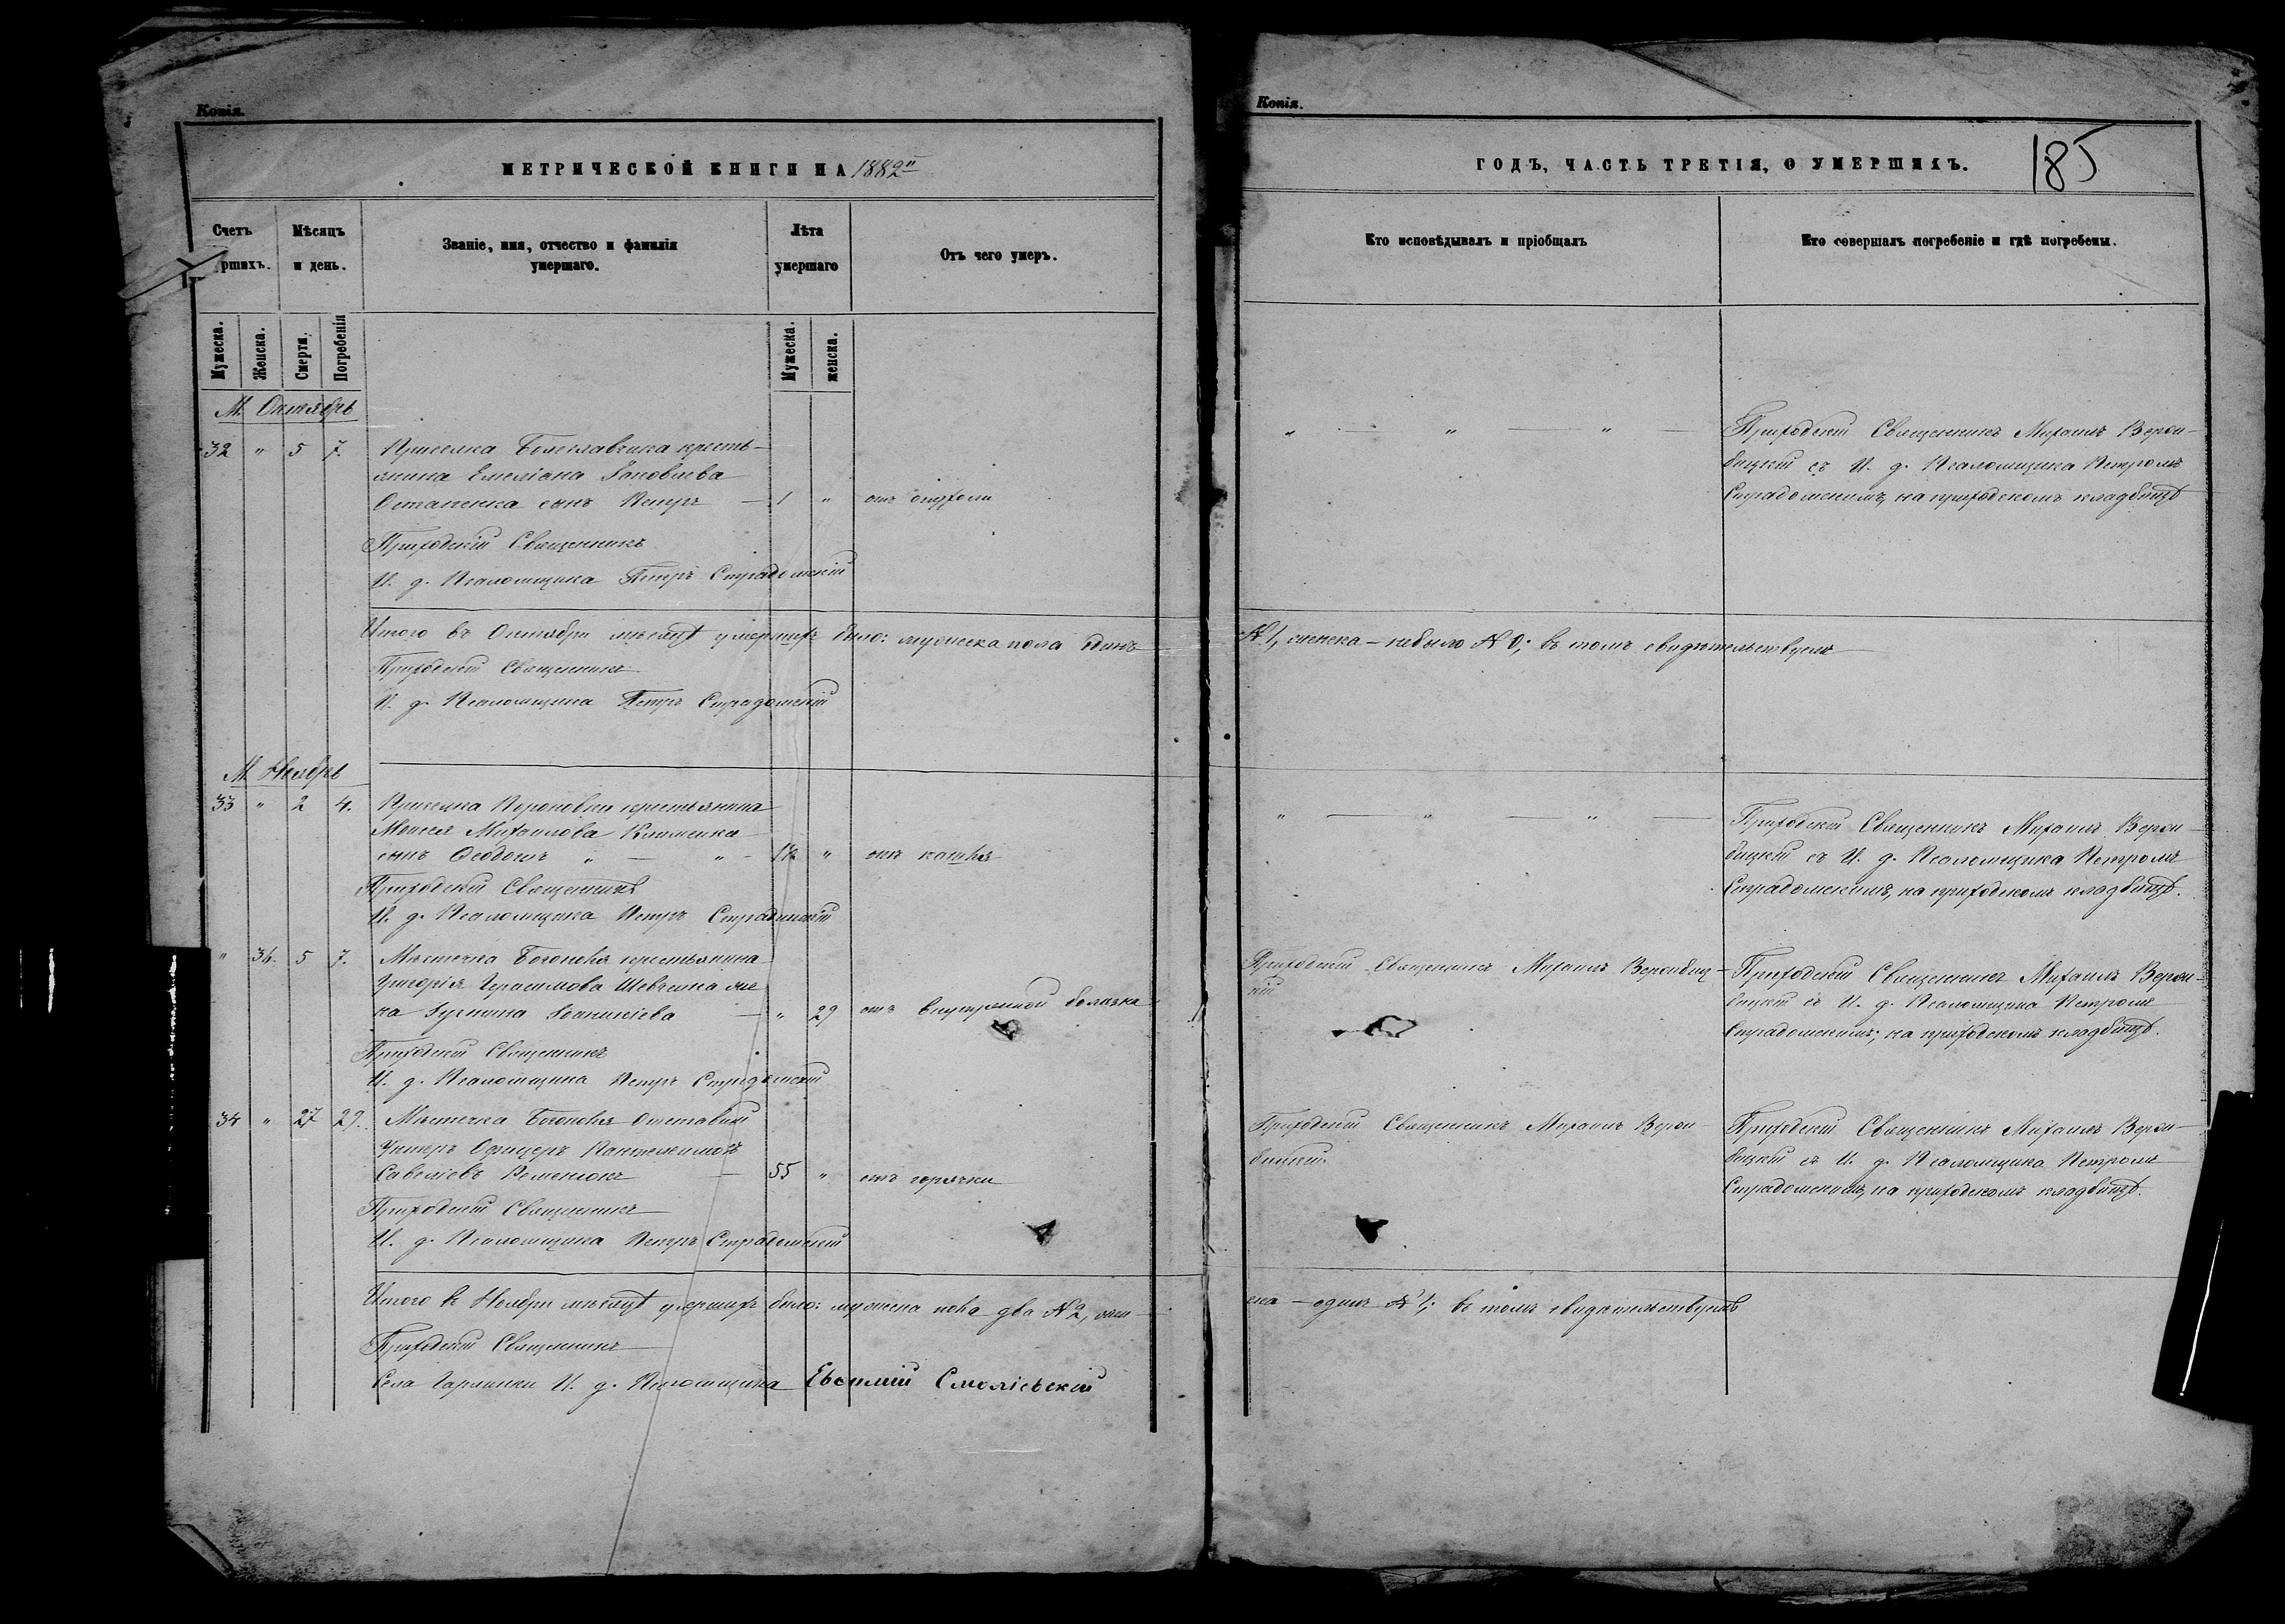 Копія.
МЕТРИЧЕСКОЙ КНИГИ НА 1882й
Счетъ
ршихъ.
Мѣсяцъ
и день.
Званіе, имя, отчество и фамилія
умершаго.
Лѣта
умершаго
Отъ чего умеръ.
Мужеска.
Женска.
Смерти.
Погребенія
Мужеска.
женска.
М. Октябрь
32 " 5 7. Приселка кресть-
янина Емеліана Іаковлева
Остапенка сынъ Петръ — 1 " отъ опухоли
Приходскій Священникъ
И. д. Псаломщика Петръ Страдомскій
Итого въ Октябри мѣсяцѣ умершихъ было: мужеска пола одинъ
Приходскій Священникъ
И. д. Псаломщика Петръ Страдомскій
М. Ноябрь
33 " 2 4. Приселка крестьянина
Моисея Михаилова Клименка
сынъ Ѳеодосій " — " - " отъ кашля
Приходскій Священникъ
И. д. Псаломщика Петръ Страдомскій
" 5 7. Мѣстечка Богополя крестьянина
Григорія Герасимова Шевченка же
на — " 29 отъ внутренной болѣзни
Приходскій Священникъ
И. д. Псаломщика Петръ Страдомскій
34 " 27 29. Мѣстечка Богополя Отставной
Унтеръ Офицеръ Пантелеимонъ
Савеліевъ Ременюкъ — 55 " отъ горячки
Приходскій Священникъ
И. д. Псаломщика Петръ Страдомскій
Итого въ Ноябри мѣсяцѣ умершихъ было: мужеска пола два № 2, жен-
Приходскій Священникъ
Села И. д. Псаломщика Евѳимій Смоліевскій
Копія.
ГОДЪ, ЧАСТЬ ТРЕТІЯ, О УМЕРШИХЪ.
185
Кто исповѣдывалъ и пріобщалъ
Кто совершалъ погребеніе и гдѣ погребены.
" — " — " — Приходскій Священникъ Михаилъ Верби-
бицкій съ И. д. Псаломщика Петромъ
Страдомскимъ, на приходскомъ кладбищѣ
№ 1, женска — небыло № 0; въ томъ свидѣтельствуемъ
" — " — " — Приходскій Священникъ Михаилъ
бицкій съ И. д. Псаломщика Петромъ
Страдомскимъ, на приходскомъ кладбищѣ.
Приходскій Священникъ Михаилъ
кій
Приходскій Священникъ Михаилъ
бицкій съ И. д. Псаломщика Петромъ
Страдомскимъ; на приходскомъ кладбищѣ.
Приходскій Священникъ Михаилъ
бицкій.
Приходскій Священникъ Михаилъ
бицкій съ И. д. Псаломщика Петромъ
Страдомскимъ, на приходскомъ кладбищѣ.
ска — одинъ № 1; въ томъ свидѣтельствуемъ